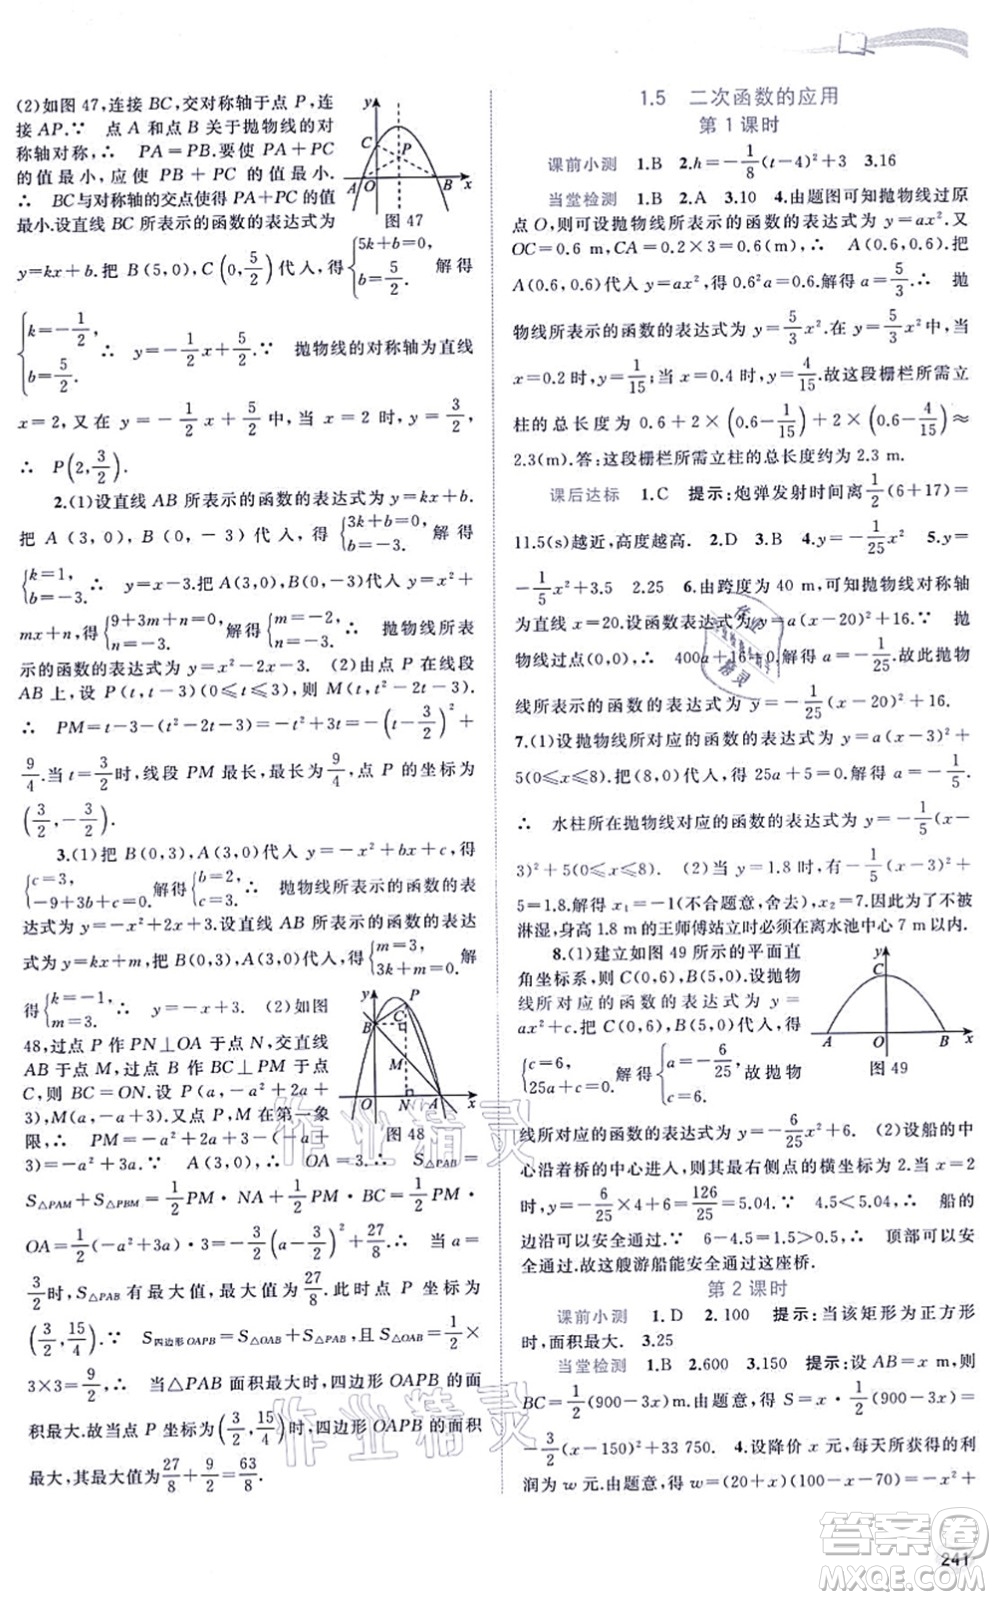 (2)如图 47,连接 BC,交对称轴于点 P,连
接 AP.∵ 点 A 和点 B 关于抛物线的对
称轴对称,∴ PA=PB.要使 PA+PC
的值最小,应使 PB+PC 的值最小.
∴ BC与对称轴的交点使得 PA+PC 的值
最小.设直线 BC 所表示的函数的表达式为
y=kx+b.把 B(5,0),C(0,5/2)代入,得{5k+b=0, b=5/2. 解得
{k=-1/2, b=5/2. ∴ y=-1/2x+5/2.∵ 抛物线的对称轴为直线
x=2,又在 y=-1/2x+5/2中,当 x=2 时,y=3/2,
∴ P(2,3/2).
y C A O B x
图 47
2.(1)设直线 AB 所表示的函数的表达式为 y=kx+b.
把 A(3,0),B(0,-3)代入,得{3k+b=0, b=-3. 解得
{k=1, b=-3. ∴ y=x-3.把 A(3,0),B(0,-3)代入 y=x²+
mx+n,得{9+3m+n=0, n=-3. 解得{m=-2, n=-3. ∴ 抛物线所表
示的函数的表达式为 y=x²-2x-3. (2)由点 P 在线段
AB 上,设 P(t,t-3)(0⩽t⩽3),则 M(t,t²-2t-3).
∴ PM=t-3-(t²-2t-3)=-t²+3t=-(t-3/2)²+
9/4.当 t=3/2时,线段 PM 最长,最长为9/4,点 P 的坐标为
(3/2,-3/2).
3.(1)把 B(0,3),A(3,0)代入 y=-x²+bx+c,得
{c=3, -9+3b+c=0. 解得{b=2, c=3. ∴ 抛物线所表示的函数的表
达式为 y=-x²+2x+3.设直线 AB 所表示的函数的表达
式为 y=kx+m,把 B(0,3),A(3,0)代入,得{m=3, 3k+m=0. 解
得{k=-1, m=3. ∴ y=-x+3. (2)如图
48,过点 P 作 PN⊥OA 于点 N,交直线
AB 于点 M,过点 B 作 BC⊥PN 于点
C,则 BC=ON.设 P(a,-a²+2a+
3),M(a,-a+3).又点 P,M 在第一象
限,∴ PM=-a²+2a+3-(-a+
3)=-a²+3a.∵ A(3,0),∴ OA=3.∴ S△PAB=
S△PAM+S△PBM=1/2PM·NA+1/2PM·BC=1/2PM·
OA=1/2(-a²+3a)·3=-3/2(a-3/2)²+27/8.∴ 当 a=
3/2时,S△PAB有最大值,最大值为27/8.此时点 P 的坐标为
(3/2,15/4).∵ S四边形OAPB=S△OAB+S△PAB,且 S△OAB=1/2×
3×3=9/2,∴ 当△PAB 面积最大时,四边形 OAPB 的面积
最大.故当点 P 的坐标为(3/2,15/4)时,四边形 OAPB 的面积
最大,其最大值为27/8+9/2=63/8.
y P C B M O N A x
图 48
1.5 二次函数的应用
第 1 课时
课前小测 1.B 2.h=-1/8(t-4)²+3 3.16
当堂检测 1.B 2.A 3.10 4.由题图可知抛物线过原
点 O,则可设抛物线所表示的函数的表达式为 y=ax².又
OC=0.6 m,CA=0.2×3=0.6(m),∴ A(0.6,0.6).把
A(0.6,0.6)代入 y=ax²,得 0.6²a=0.6.解得 a=5/3.∴ 抛
物线所表示的函数的表达式为 y=5/3x².在 y=5/3x²中,当
x=0.2 时,y=1/15;当 x=0.4 时,y=4/15.故这段栅栏所需立
柱的总长度为 0.6+2×(0.6-1/15)+2×(0.6-4/15)≈
2.3(m).答:这段栅栏所需立柱的总长度约为 2.3 m.
课后达标 1.C 提示:炮弹发射时间离1/2(6+17)=
11.5(s)越近,高度越高. 2.D 3.B 4.y=-1/25x² 5.y=
-1/5x²+3.5 2.25 6.由跨度为 40 m,可知抛物线对称轴
为直线 x=20.设函数表达式为 y=a(x-20)²+16.∵ 抛
物线过点(0,0),∴ 400a+16=0.解得 a=-1/25.故此抛物
线所表示的函数的表达式为 y=-1/25(x-20)²+16.
7.(1)设抛物线所对应的函数的表达式为 y=a(x-3)²+
5(0⩽x⩽8).把(8,0)代入,得 25a+5=0.解得 a=-1/5.
∴ 水柱所在抛物线对应的函数的表达式为 y=-1/5(x-
3)²+5(0⩽x⩽8). (2)当 y=1.8 时,有-1/5(x-3)²+
5=1.8.解得 x₁=-1(不合题意,舍去),x₂=7.∴ 为了不被
淋湿,身高 1.8 m的王师傅站立时必须在离水池中心 7 m以内.
8.(1)建立如图 49 所示的平面直
角坐标系,则 C(0,6),B(5,0).设抛物
线所对应的函数的表达式为 y=
ax²+c.把 C(0,6),B(5,0)代入,得
{c=6, 25a+c=0. 解得{a=-6/25, c=6. 故抛物
线所对应的函数的表达式为 y=-6/25x²+6. (2)设船的中
心沿着桥的中心进入,则其右侧点的横坐标为 2.当 x=2
时,y=-6/25×4+6=126/25=5.04.∵ 4.5<5.04,∴ 船的两
边沿可以安全通过.∵ 6-4.5=1.5>0.5,∴ 顶部可以安
全通过.故这艘游船能安全通过这座桥.
y C A O B x
图 49
第 2 课时
课前小测 1.D 2.100 提示:当该矩形为正方形
时,面积最大. 3.25
当堂检测 1.B 2.600 3.150 提示:设 AB=x m,则
BC=1/2(900-3x)m.根据题意,得 S=x×1/2(900-3x)=
-3/2(x-150)²+33 750. 4.设降价 x 元,每天所获得的利
润为 w 元.由题意,得 w=(20+x)(100-x-70)=-x²+
作业精灵
作业精灵
作业精灵
答案圈
241